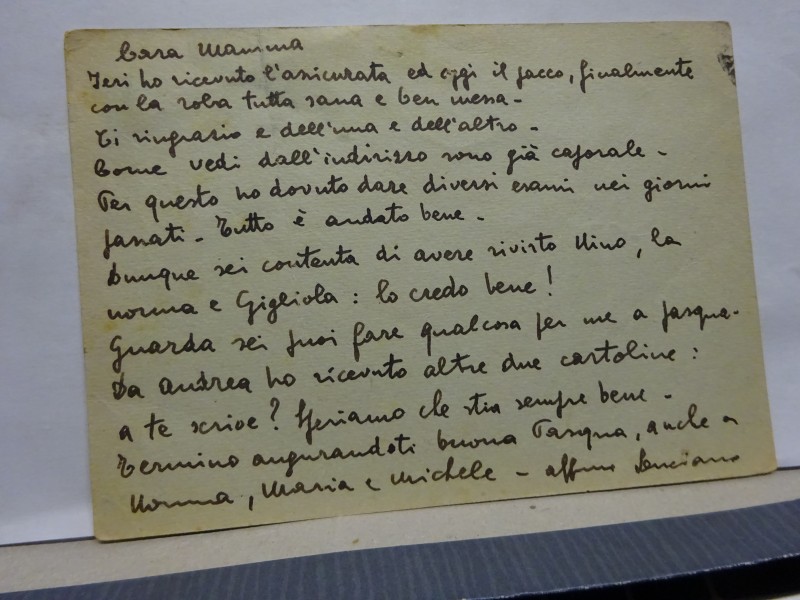 Cara Mamma
Ieri ho ricevuto l'assicurata ed oggi il pacco, finalmente
con la roba tutta sana e ben messa -
Ti ringrazio e dell'una e dell'altro -
Come vedi dall'indirizzo sono già caporale -
Per questo ho dovuto dare diversi esami nei giorni
passati - Tutto è andato bene -
Dunque sei contenta di avere rivisto Nino, la
nonna e Gigliola : lo credo bene !
Guarda sei puoi fare qualcosa per me a pasqua -
Da Andrea ho ricevuto altre due cartoline :
a te scrive ? Speriamo che stia sempre bene -
Termino augurandoti buona Pasqua, anche a
Nonna, Maria e Michele - affmo Luciano